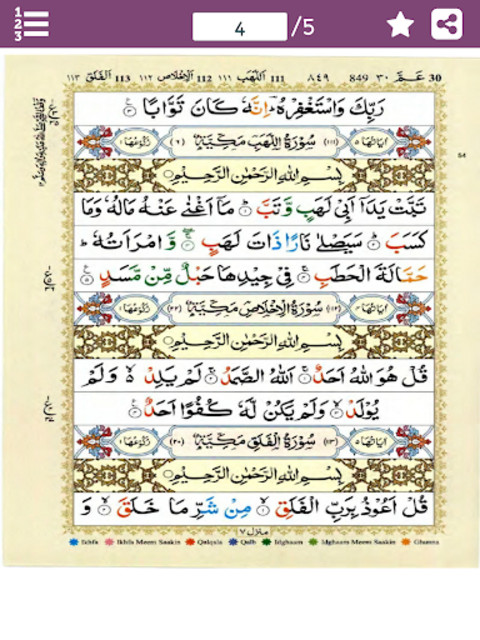 4 /5
113 الفلق ١١٣ 112 الإخلاص ١١٢ 111 اللهب ١١١ ٨٤٩ 849 عم ٣٠ 30
رَبِّكَ وَاسْتَغْفِرْهُ ؔ اِنَّهٗ كَانَ تَوَّابًا
اٰيَاتُهَا ٥ (١١١) سُوْرَةُ اللَّهَبِ مَكِّيَّةٌ (٦) رُكُوْعُهَا ١
بِسْمِ اللّٰهِ الرَّحْمٰنِ الرَّحِيْمِ
تَبَّتْ يَدَاۤ اَبِيْ لَهَبٍ وَّتَبَّ مَاۤ اَغْنٰى عَنْهُ مَالُهٗ وَمَا
كَسَبَ سَيَصْلٰى نَارًا ذَاتَ لَهَبٍ وَّامْرَاَتُهٗ ؕ
حَمَّالَةَ الْحَطَبِ فِيْ جِيْدِهَا حَبْلٌ مِّنْ مَّسَدٍ
اٰيَاتُهَا ٤ (١١٢) سُوْرَةُ الْاِخْلَاصِ مَكِّيَّةٌ (٢٢) رُكُوْعُهَا ١
بِسْمِ اللّٰهِ الرَّحْمٰنِ الرَّحِيْمِ
قُلْ هُوَ اللّٰهُ اَحَدٌ اَللّٰهُ الصَّمَدُ لَمْ يَلِدْ ۙ وَلَمْ
يُوْلَدْ وَلَمْ يَكُنْ لَّهٗ كُفُوًا اَحَدٌ
اٰيَاتُهَا ٥ (١١٣) سُوْرَةُ الْفَلَقِ مَكِّيَّةٌ (٢٠) رُكُوْعُهَا ١
بِسْمِ اللّٰهِ الرَّحْمٰنِ الرَّحِيْمِ
قُلْ اَعُوْذُ بِرَبِّ الْفَلَقِ مِنْ شَرِّ مَا خَلَقَ وَ
منزل ٧
Ikhfa Ikhfa Meem Saakin Qalqala Qalb Idghaam Idghaam Meem Saakin Ghunna